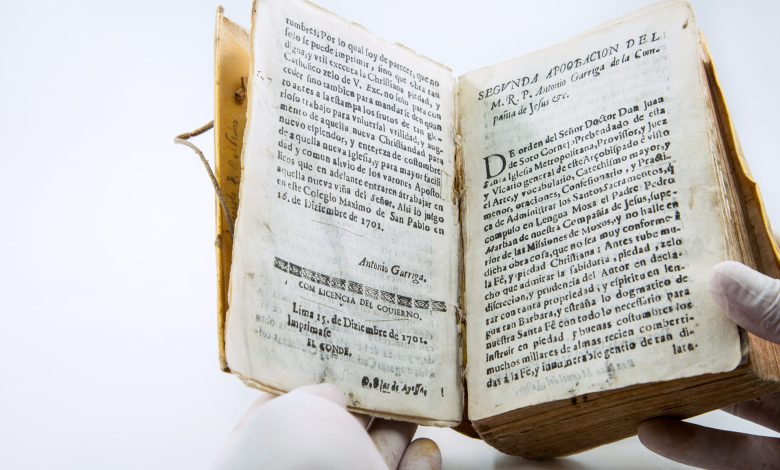 tumbres; Por lo qual soy de parecer, que no
solo se puede imprimir, sino que obra tan
digna, y vtil executa la Christiana piedad, y
Catholico zelo de V. Exc. no solo para con
ceder sino tambien para mandarle den quan
to antes a la estampa los frutos de tan glo
rioso trabajo para vniuersal vtilidad, y aug-
mento de aquella nueva Christiandad para
nuevo esplendor, y entereza de costumbre
de aquella nueva Iglesia; y para mayor facili
dad y comun alivio de los varones Aposto-
licos que en adelante entraren atrabajar en
aquella nueva viña del Señor. Assi lo juzgo
en este Colegio Maximo de San Pablo en
16. de Diziembre de 1701.
Antonio Garriga.
COM LICENCIA DEL GOUIERNO.
Lima 15. de Diziembre de 1701.
Imprimase
EL CONDE.
D. Blas de Ayessa,
SEGVNDA APROBACION DEL
M. R. P. Antonio Garriga de la Com-
pañia de Jesus &c.
DE orden del Señor Doctor Don Juan
de Soto Cornejo Prebendado de esta
Santa Iglesia Metropolitana, Provisor, y Juez
y Vicario general de este Arçobispado è visto
el Arte, y vocabulario, Catechismo mayor, y
menor, oraciones, Confessionario, y Practi-
ca de Administrar los Santos Sacramentos, q
compuso en Lengua Moxa el Padre Pedro
Marban de nuestra Compañia de Jesus, supe-
rior de las Missiones de Moxos, y no hallè en
dicha obra cosa, que no sea muy conforme à
la Fè, y piedad Christiana: Antes tube mu-
cho que admirar la sabiduria, piedad, zelo
discrecion, y prudencia del Autor en decla-
rar con tanta propriedad, y espiritu en len-
gua tan Barbara, y estraña lo dogmatico de
nuestra Santa Fè con todo lo necessario para
instruir en piedad, y buenas costumbres los
muchos millares de almas recien comberti-
das á la Fè, y innumerable gentio de tan di
lata-